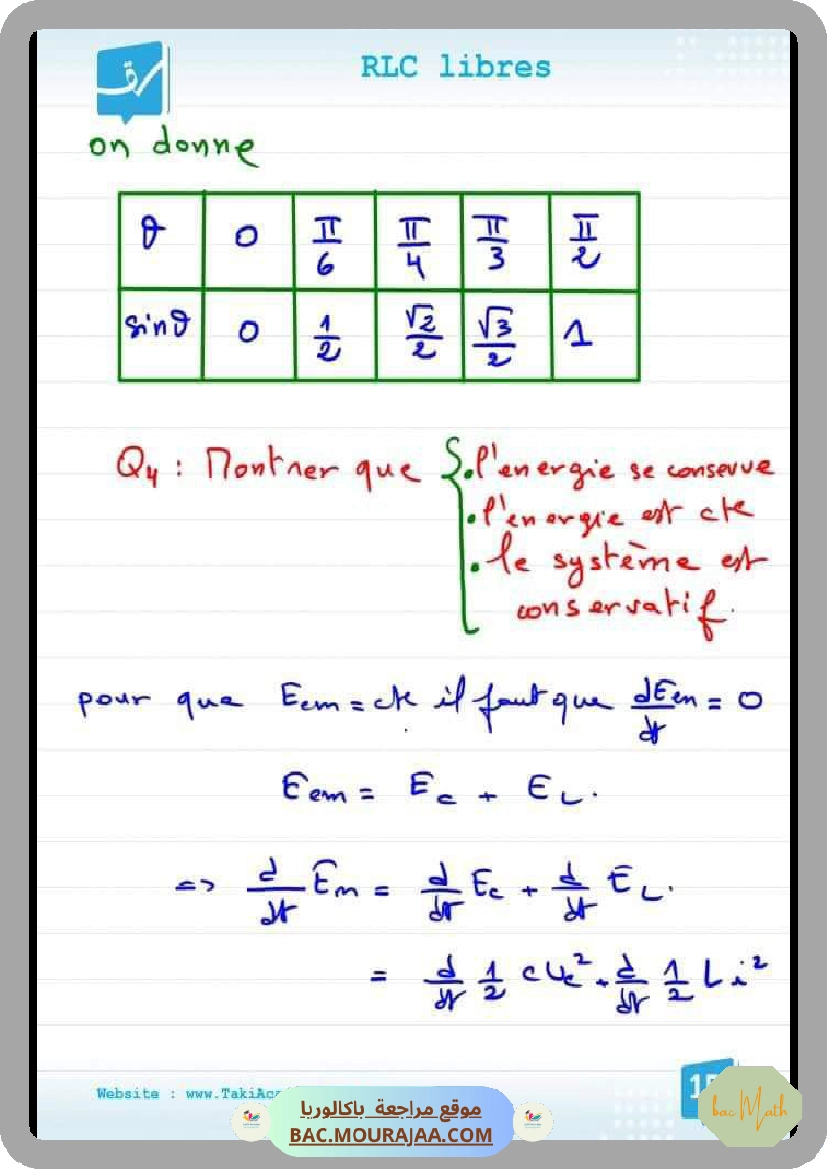 RLC libres
on donne
θ 0 π/6 π/4 π/3 π/2
sinθ 0 1/2 √2/2 √3/2 1
Q4 : Montrer que { • l'energie se conserve
• l'energie est cte
• le système est
conservatif.
pour que Eem = cte il faut que dEem/dt = 0
Eem = Ec + EL.
=> d/dt Em = d/dt Ec + d/dt EL.
= d/dt 1/2 cUc² + d/dt 1/2 Li²
Website : www.TakiAc
موقع مراجعة باكالوريا
BAC.MOURAJAA.COM
bac Math